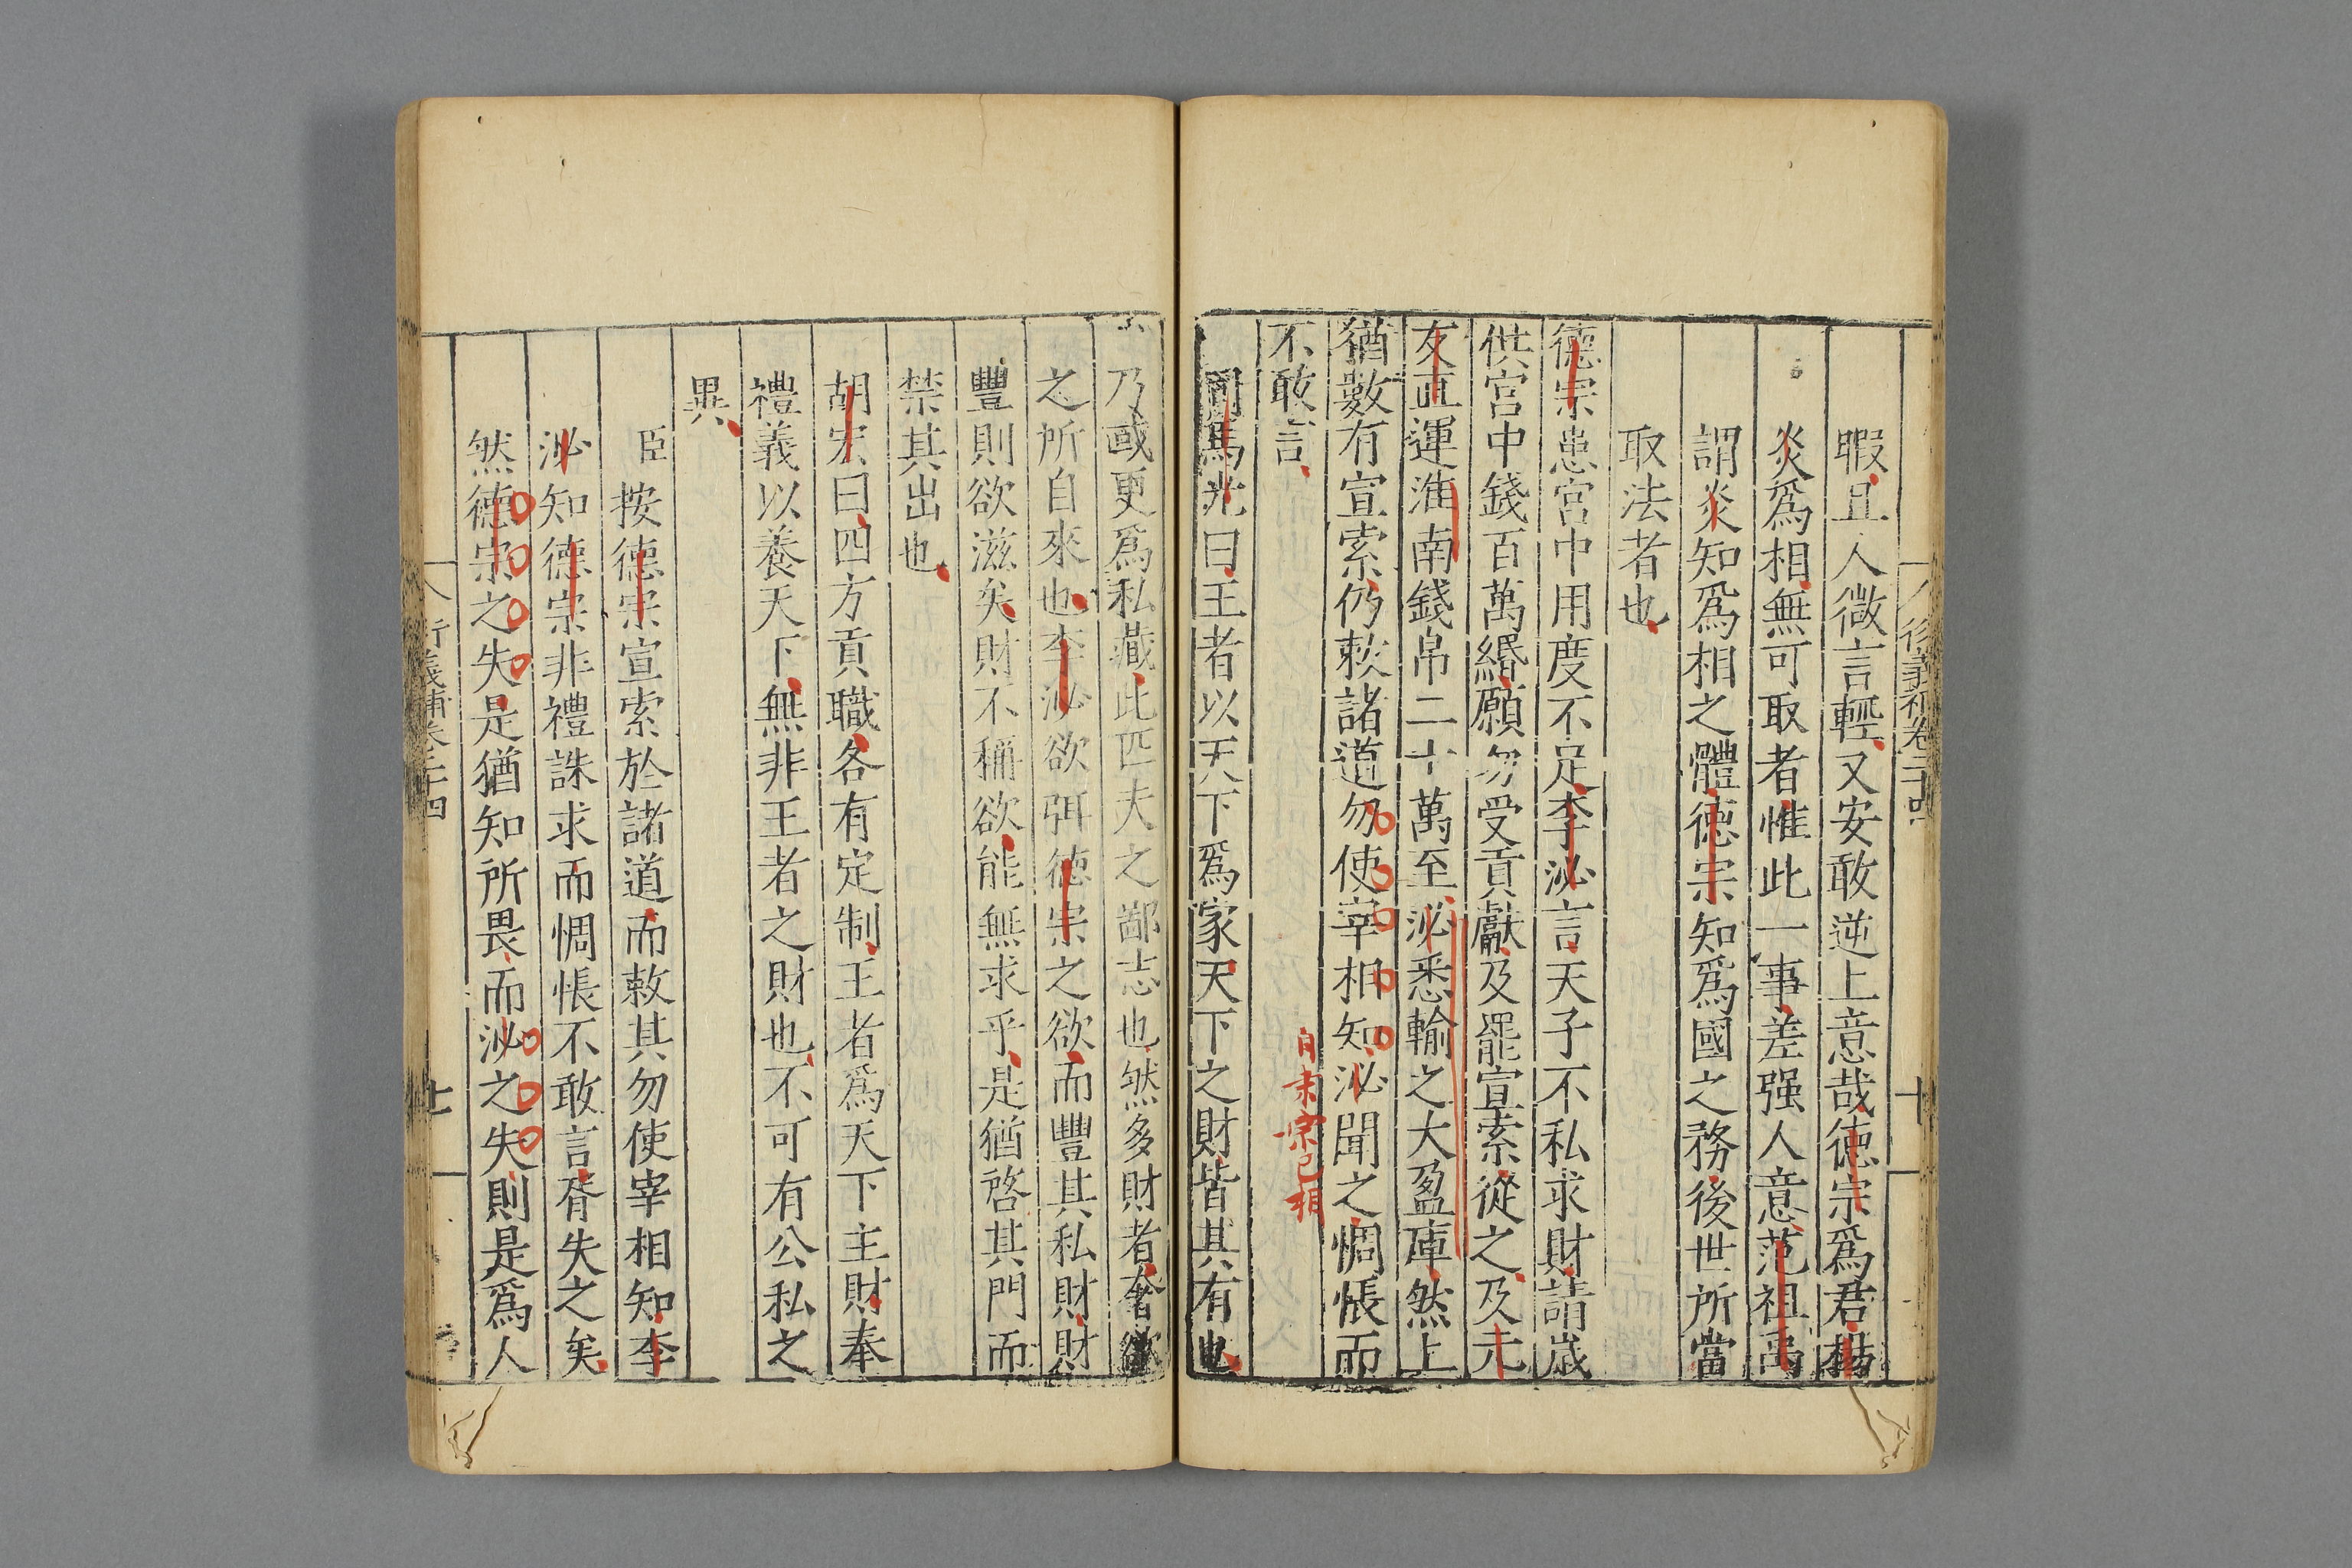 暇且人微言輕又安敢逆上意哉德宗爲君楊
炎爲相無可取者惟此一事差强人意范祖禹
謂炎知爲相之體德宗知爲國之務後世所當
取法者也
德宗患宮中用度不足李泌言天子不私求財請歲
供宮中錢百萬緡願勿受貢獻及罷宣索從之及元
友直運淮南錢帛二十萬至泌悉輸之大盈庫然上
猶數有宣索仍敕諸道勿使宰相知泌聞之惆悵而
不敢言
自肅宗已相
司馬光曰王者以天下爲家天下之財皆其有也
乃或更爲私藏此匹夫之鄙志也然多財者奢欲
之所自來也李泌欲弭德宗之欲而豐其私財財
豐則欲滋矣財不稱欲能無求乎是猶啓其門而
禁其出也
胡宏曰四方貢職各有定制王者爲天下主財奉
禮義以養天下無非王者之財也不可有公私之
異
臣按德宗宣索於諸道而敕其勿使宰相知李
泌知德宗非禮誅求而惆悵不敢言胥失之矣
然德宗之失是猶知所畏而泌之失則是爲人